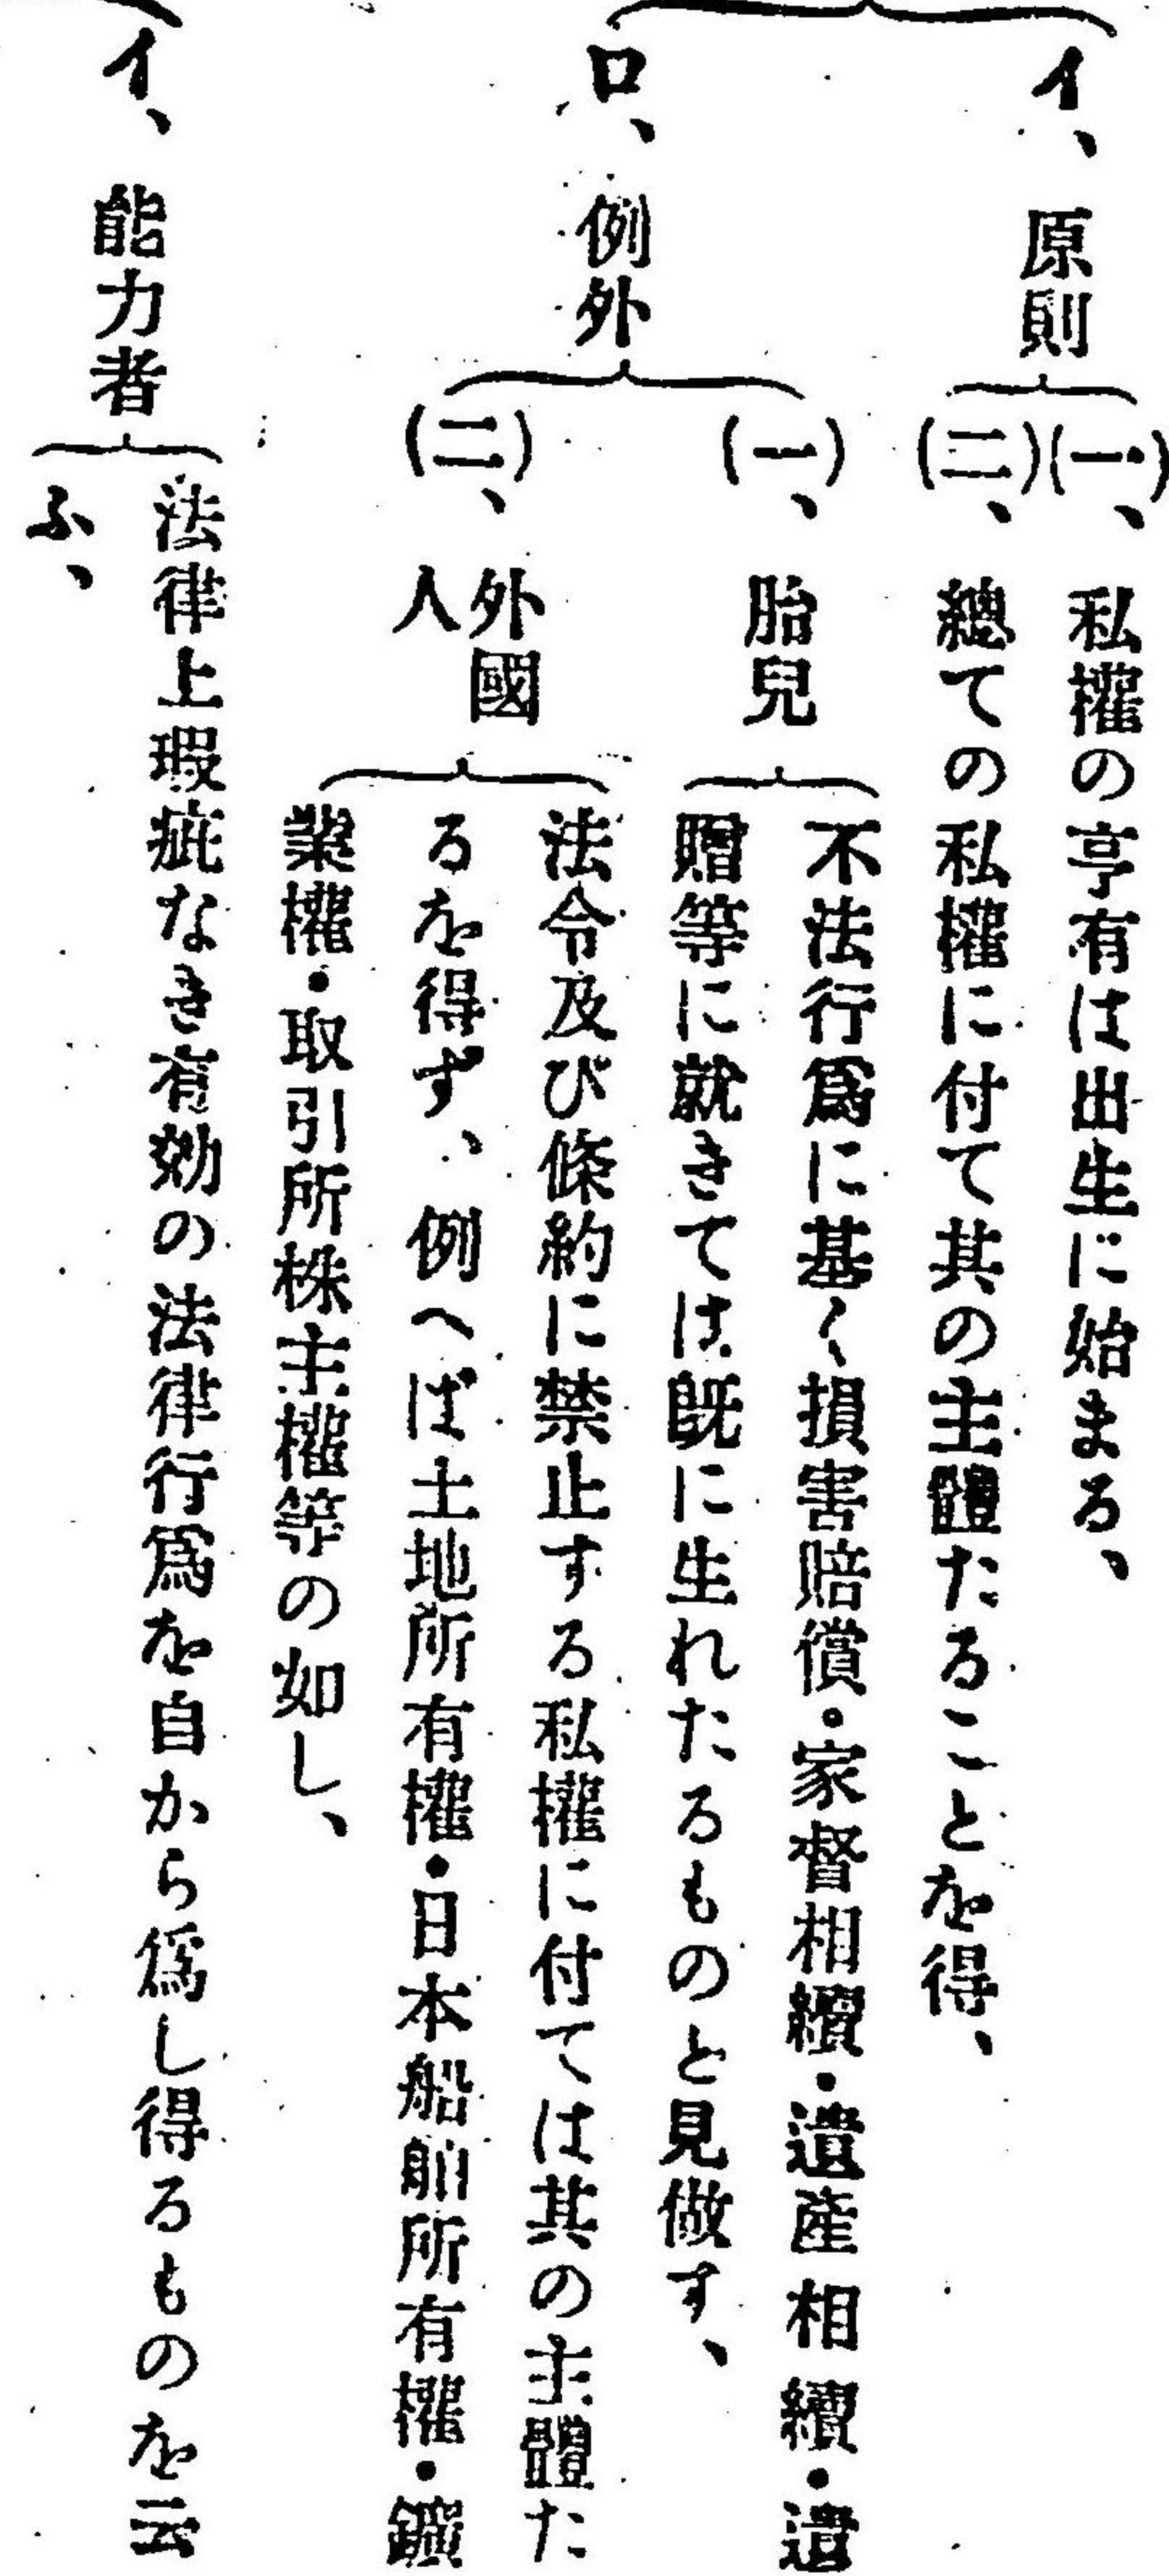 イ、原則
(一)、私權の亨有は出生に始まる、
(二)、總ての私權に付て其の主體たることを得、
ロ、例外
(一)、胎兒
不法行爲に基く損害賠償・家督相續・遺產相續・遺
贈等に就きては既に生れたるものと見做す、
(二)、外國
人
法令及び條約に禁止する私權に付ては其の主體た
るを得ず、例へば土地所有權・日本船舶所有權・鑛
業權・取引所株主權等の如し、
イ、能力者
法律上瑕疵なき有効の法律行爲を自から爲し得るものを云
ふ、